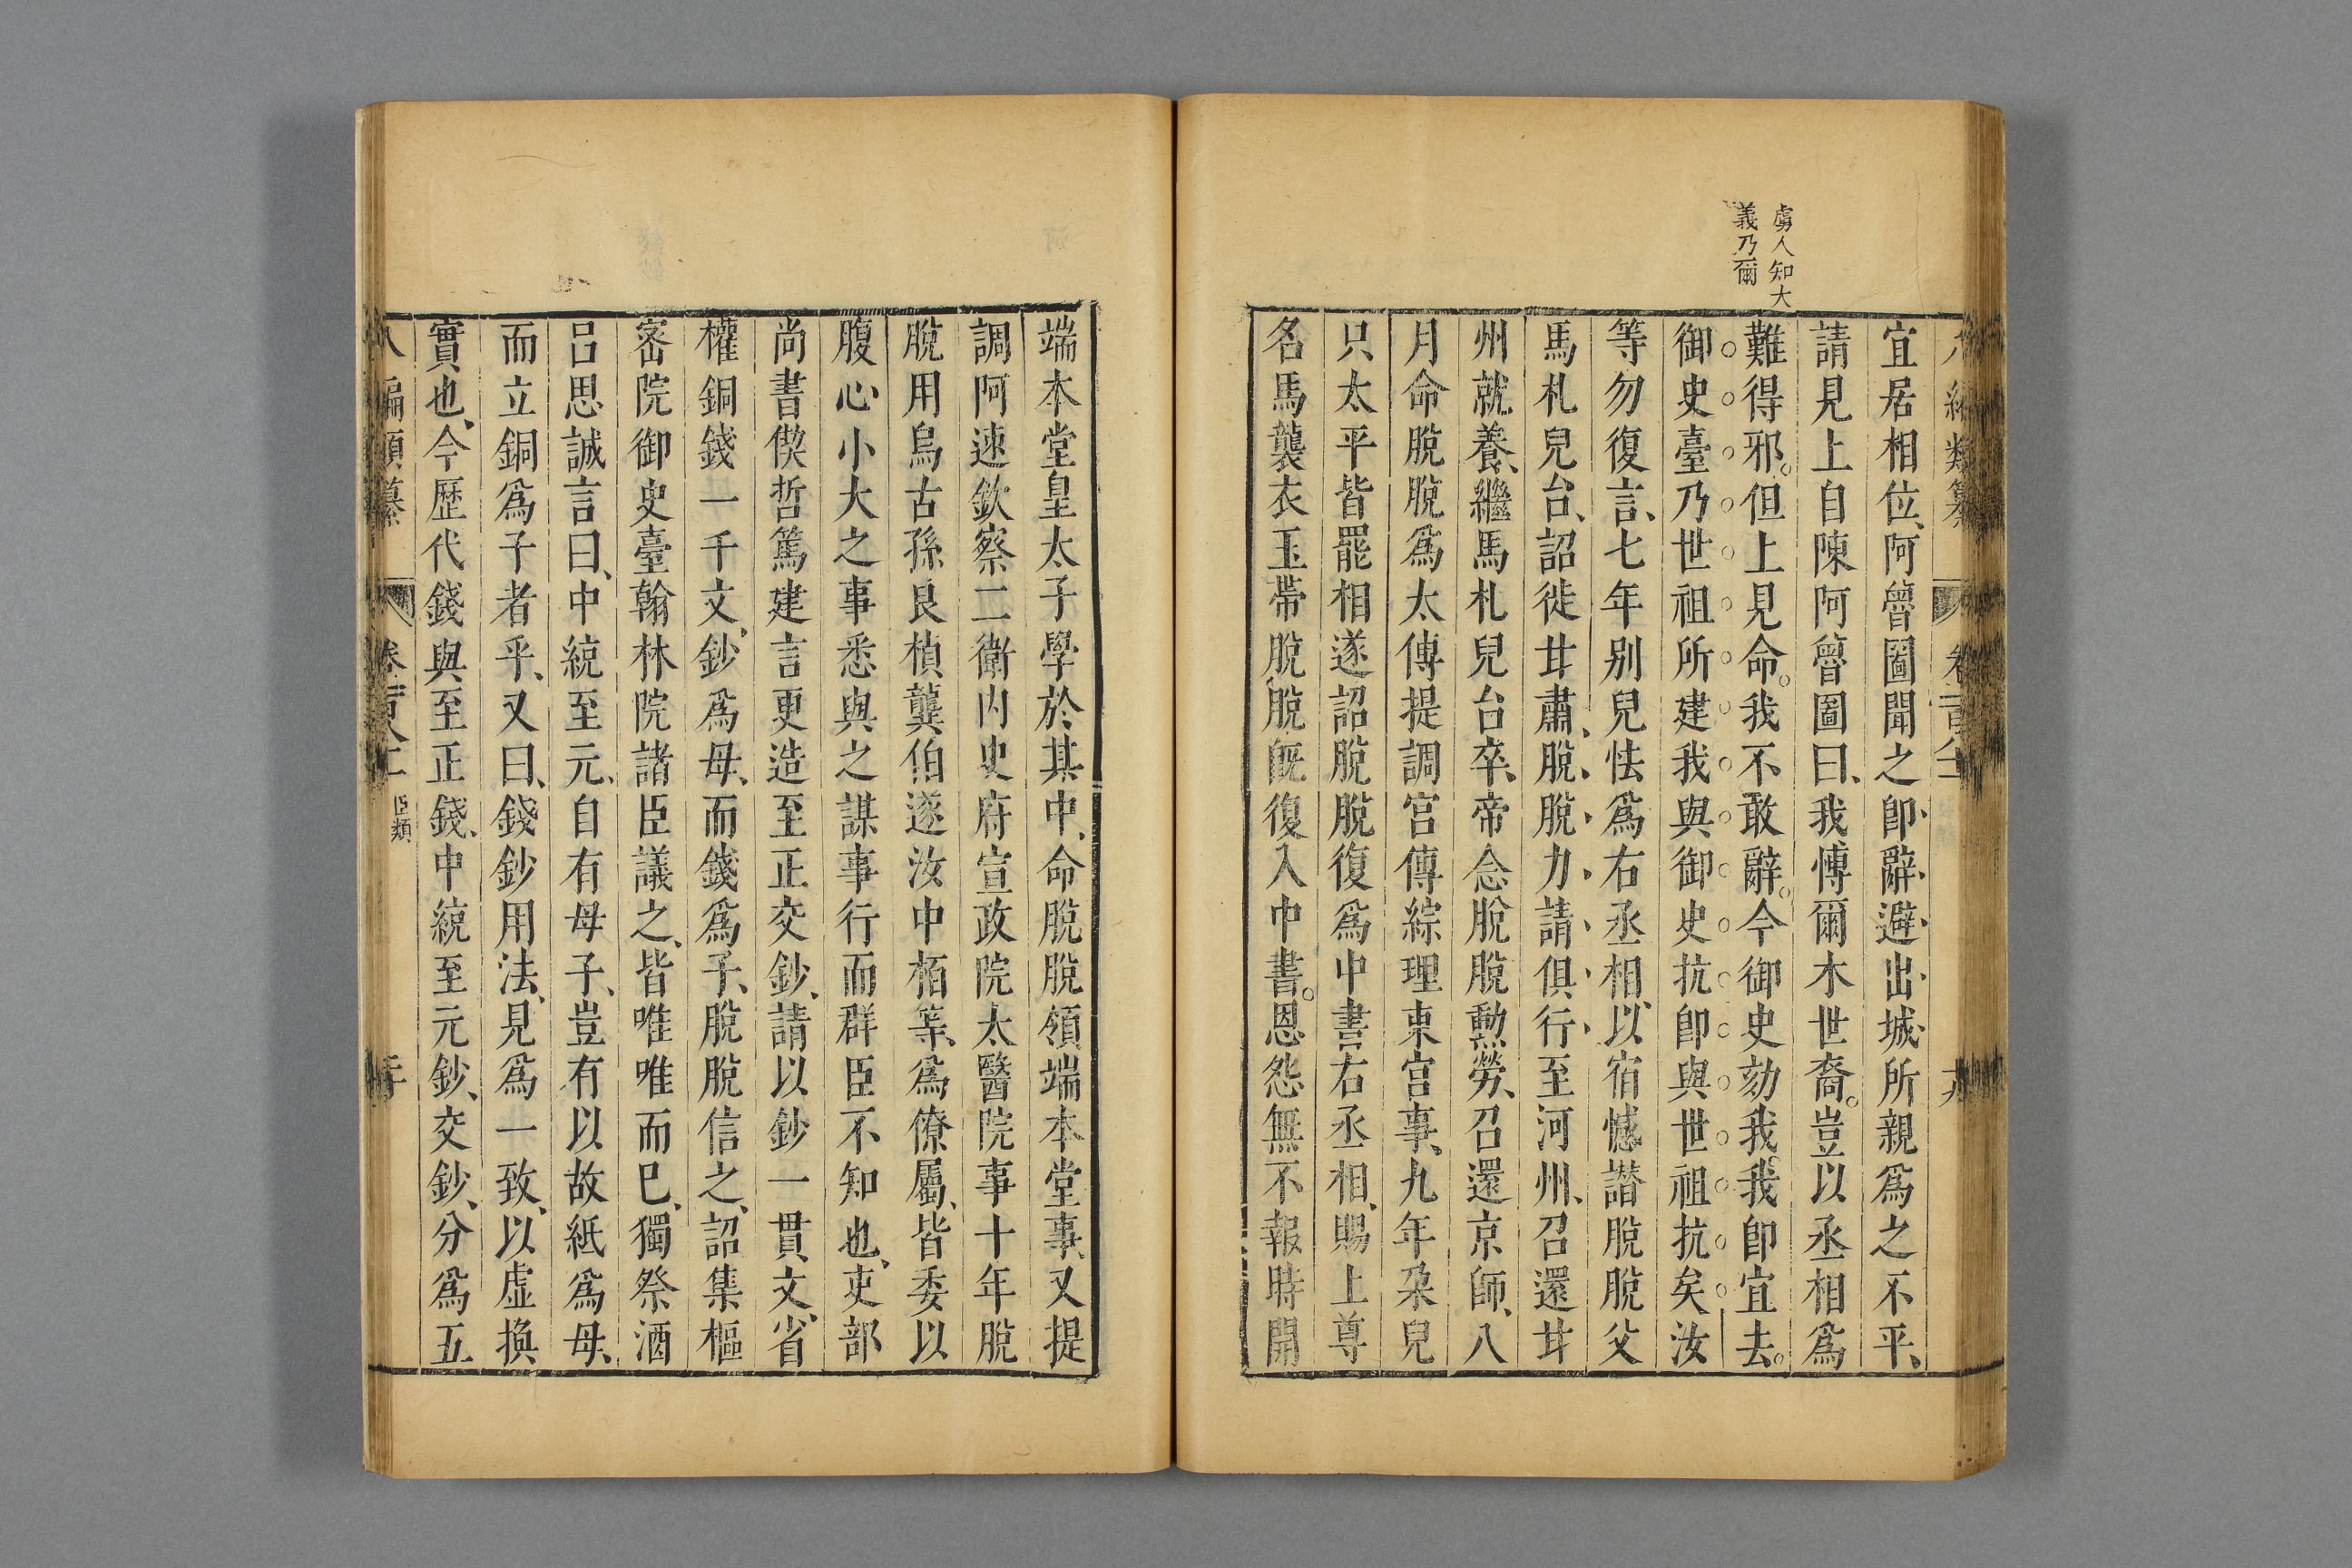 虜人知大
義乃爾
宜居相位、阿魯圖聞之即辭避出城所親爲之不平、
請見上自陳阿魯圖曰、我愽爾木世裔。豈以丞相爲
難得邪。但上見命。我不敢辭。今御史劾我。我即宜去。
御史臺乃世祖所建我與御史抗即與世祖抗矣汝
等勿復言、七年别兒怯爲右丞相、以宿憾譖脫脫父
馬札兒台、詔徙甘肅、脫脫力請俱行至河州、召還甘
州就養、繼馬札兒台卒、帝念脫脫勲勞、召還京師、八
月命脫脫爲太傅提調宫傅綜理東宫事、九年朶兒
只太平皆罷相遂詔脫脫復爲中書右丞相、賜上尊
名馬襲衣玉帶脫脫旣復入中書。恩怨無不報時開
端本堂皇太子學於其中、命脫脫領端本堂事、又提
調阿速欽察二衛内史府宣政院太醫院事十年脫
脫用烏古孫良楨龔伯遂汝中栢等、爲僚屬、皆委以
腹心小大之事悉與之謀事行而群臣不知也、吏部
尚書偰哲篤建言更造至正交鈔、請以鈔一貫文、省
權銅錢一千文、鈔爲母、而錢爲子、脫脫信之、詔集樞
密院御史臺翰林院諸臣議之、皆唯唯而已、獨祭酒
吕思誠言曰、中統至元、自有母子、豈有以故紙爲母、
而立銅爲子者乎、又曰、錢鈔用法、見爲一致、以虛換
實也、今歷代錢與至正錢、中統至元鈔、交鈔、分爲五